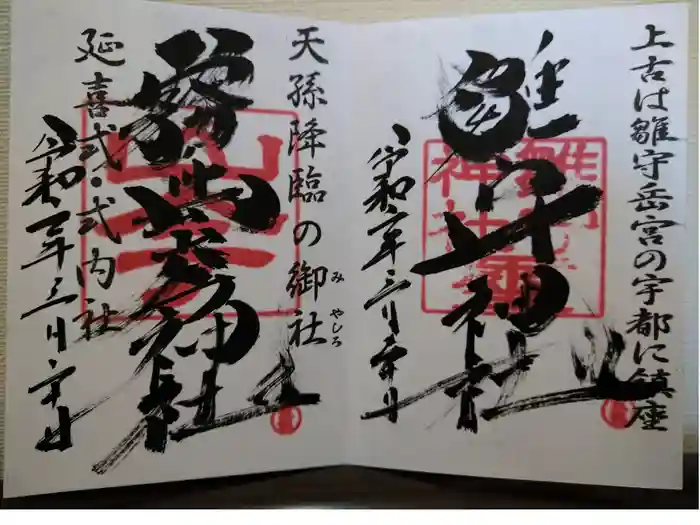 上古は雛守岳宮の宇都に鎮座
雛守神社
令和二年三月
天孫降臨の御社
みやしろ
霧島岑神社
延喜式・式内社
令和二年三月